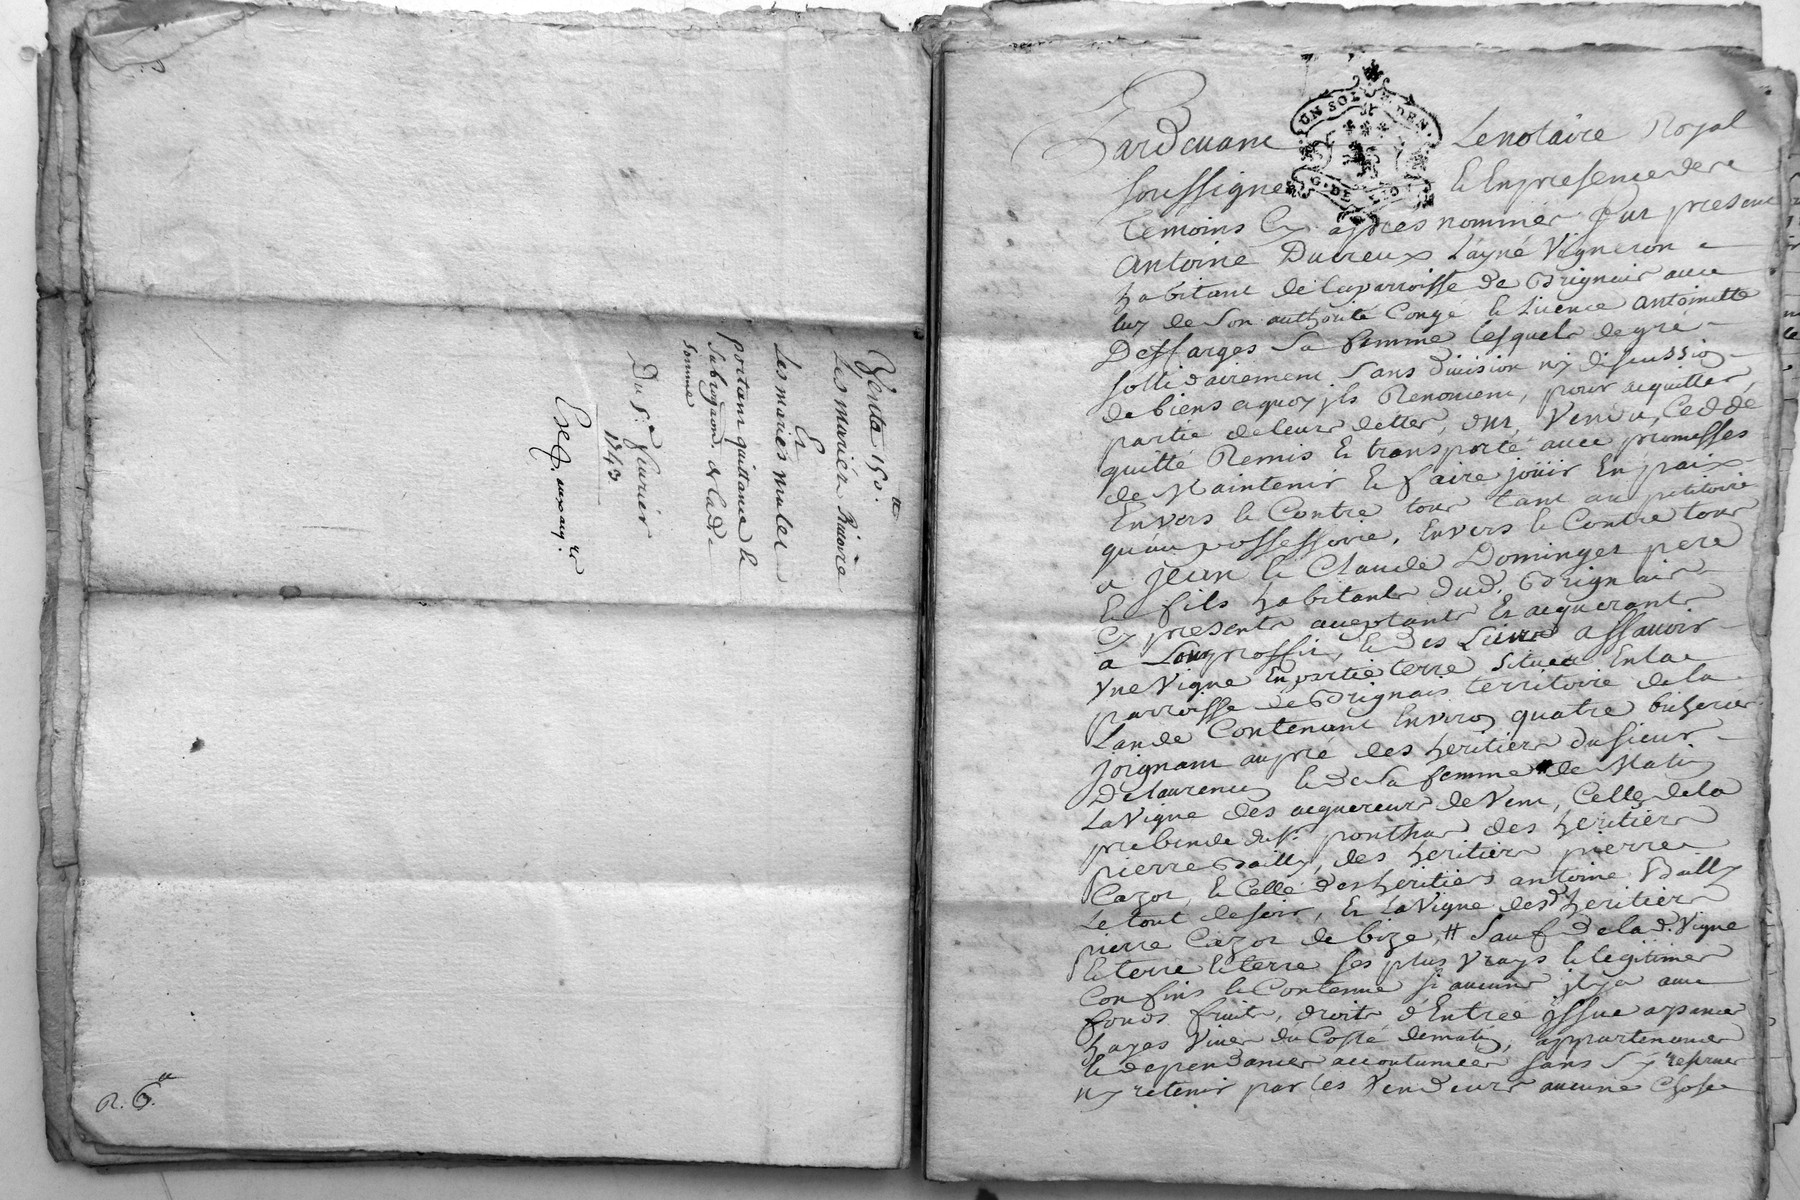 Vente 150.tt
Les mariés Rivoire
Et
Les mariés mulet
portant quittance &
Subrogaon de lad.
somme
Du 5.e feurier
1743
R. 6.tt
UN SOL DEN.
G. DE LION
Pardeuant Le notaire Royal
soussigné & En presence de
temoins Cy apres nommés fut present
Antoine Dutreux L'ayné Vigneron
habitant de la parroisse de Brignais auec
luy de son authorité Congé & Licence antoinette
Desfarges sa femme lesquels de gré
sollidairement sans Diuision ny discussion
de biens a quoy jls Renoncent, pour acquitter
partie de leurs dettes, ont, Vendu, Ceddé
quitté Remis & transporté auec promesses
de Maintenir & faire joüir En paix
Enuers & Contre tous tant au petitoire
qu'au possessoire, Enuers & Contre tous
a jean & Claude Dominget pere
& fils habitants dud. Brignais
Cy presents acceptants Et acquerants
a Leur proffit, & des Leurs assauoir
Vne Vigne En partie terre Située En la
parroisse de Brignais territoire de la
Lande Contenant Enuiron quatre bicherées
joignant au pré des heritiers du sieur
Delaurency & de sa femme de Matin
La Vigne des acquereurs de Vent, Celle de la
prebende du Sr. ponthus des heritiers
pierre Bailly, des heritiers pierre
Cazot, & Celle des heritiers antoine Bailly
Le tout de soir, Et La Vigne desd. heritiers
pierre Cazot de bize, # Sauf de lad. Vigne
& terre & terre ses plus Vrays & legitimes
Confins & Contenue si aucuns jl y a auec
fonds fruits, droits d'Entrée jssue aysances
hayes Viues du Costé de matin, appartenances
& dependances accoutumées sans s'y reseruer
ny retenir par les Vendeurs aucune chose